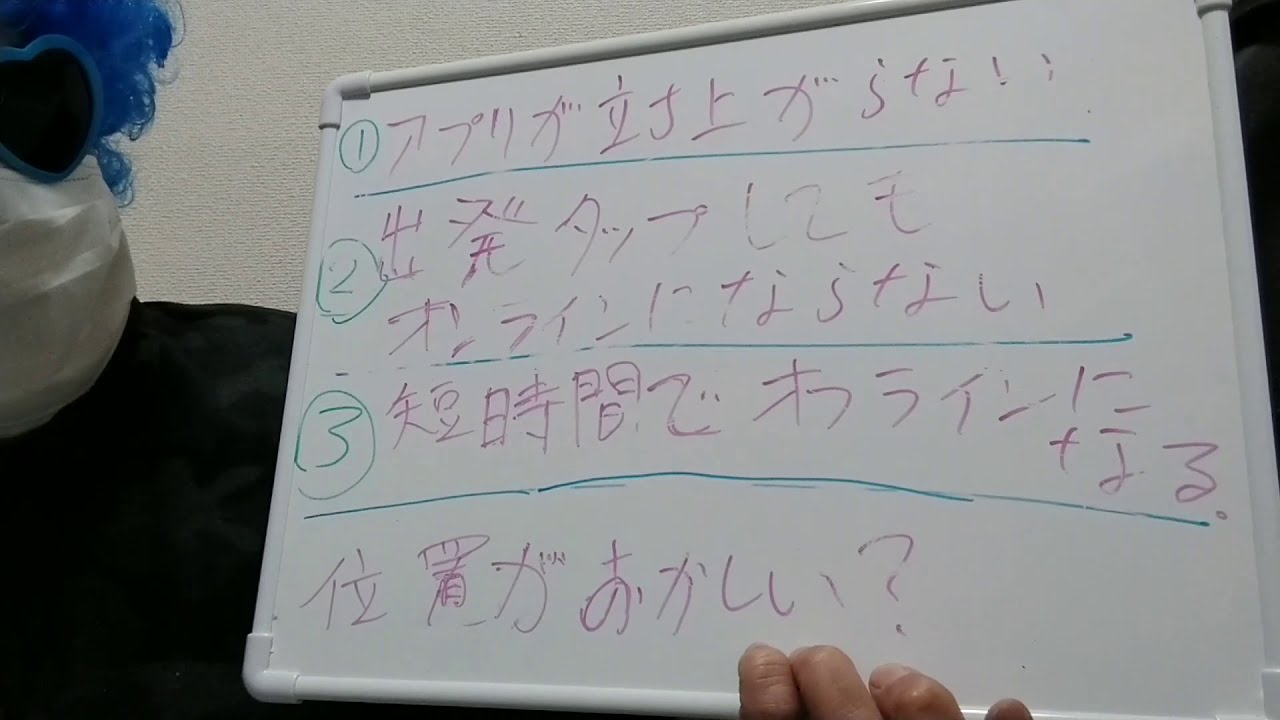 ①アプリが立ち上がらない
②出発タップしても
オンラインにならない
③短時間でオフラインに
なる。
位置がおかしい?